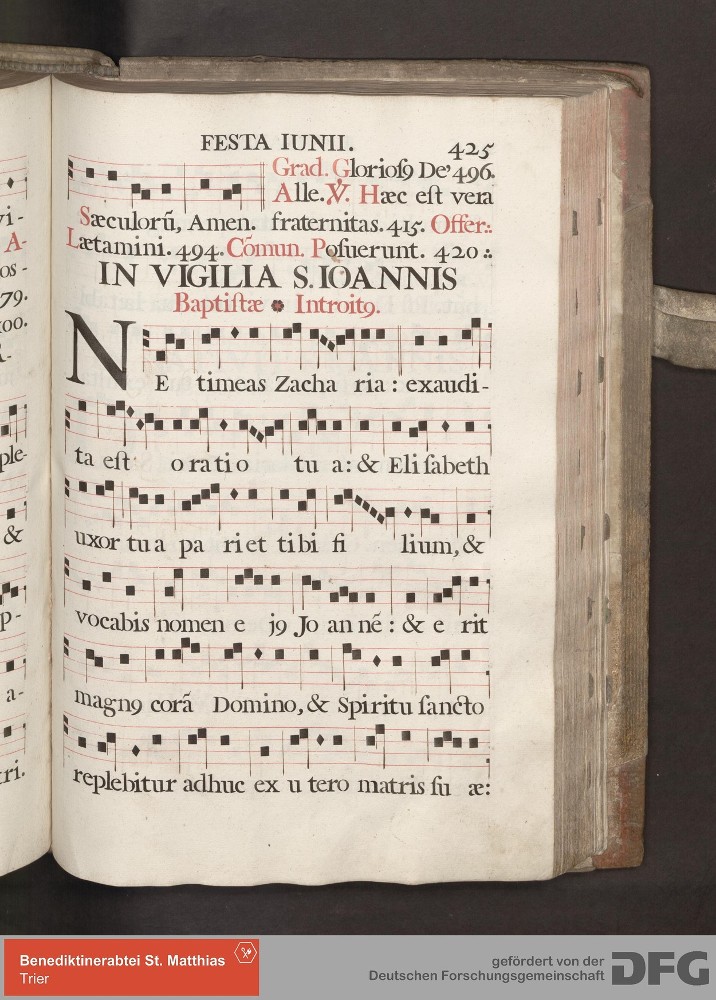 FESTA IUNII. 425
Grad. Gloriosꝰ De' 496.
Alle. ℣. Hæc eſt vera
Sæculorũ, Amen. fraternitas. 415. Offer.:
Lætamini. 494. Cõmun. Poſuerunt. 420 ∴
IN VIGILIA S. IOANNIS
Baptiſtæ Introitꝰ.
NE timeas Zacha ria : exaudi-
ta eſt o ratio tu a: & Eliſabeth
uxor tua pa riet tibi fi lium, &
vocabis nomen e jꝰ Jo annẽ : & e rit
magnꝰ corã Domino, & Spiritu ſancto
replebitur adhuc ex u tero matris ſu æ:
vi-
A-
os-
79.
100.
ple-
&
p-
a-
tri.
Benediktinerabtei St. Matthias
Trier
gefördert von der
Deutschen Forschungsgemeinschaft DFG